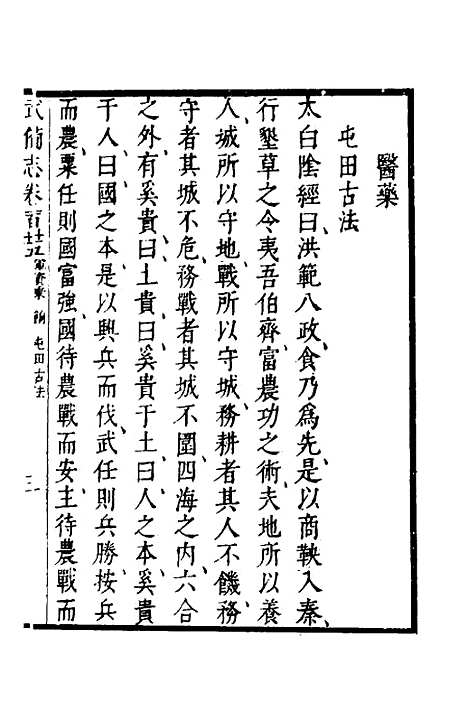 醫藥
屯田古法
太白陰經曰洪範八政食乃為先是以商鞅入秦
行墾草之令夷吾伯齊富農功之術夫地所以養
人城所以守地戰所以守城務耕者其人不饑務
守者其城不危務戰者其城不圍四海之內六合
之外有奚貴曰土貴曰奚貴于土曰人之本奚貴
于人曰國之本是以興兵而伐武任則兵勝按兵
而農粟任則國富強國待農戰而安主待農戰而
武備志卷一百卅五 軍資乘 餉 屯田古法 三